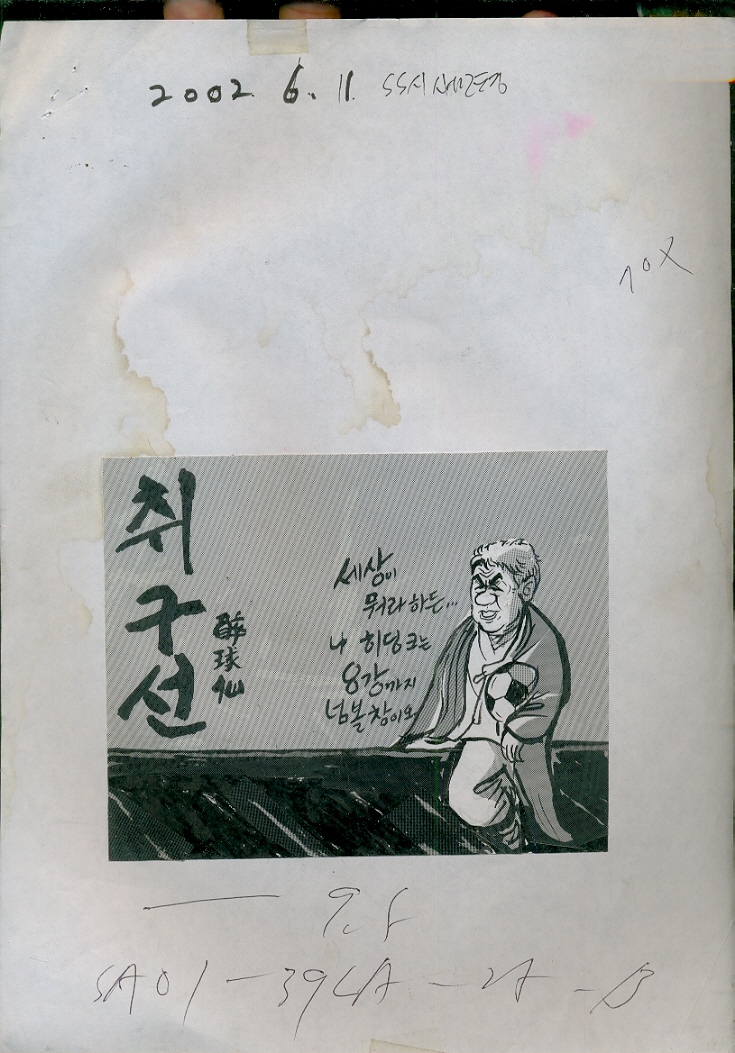 2002. 6. 11
취구선
醉球仙
세상이
뭐라하든...
나 히딩크는
8강까지
넘볼참이오
SA01-394A-2A-B